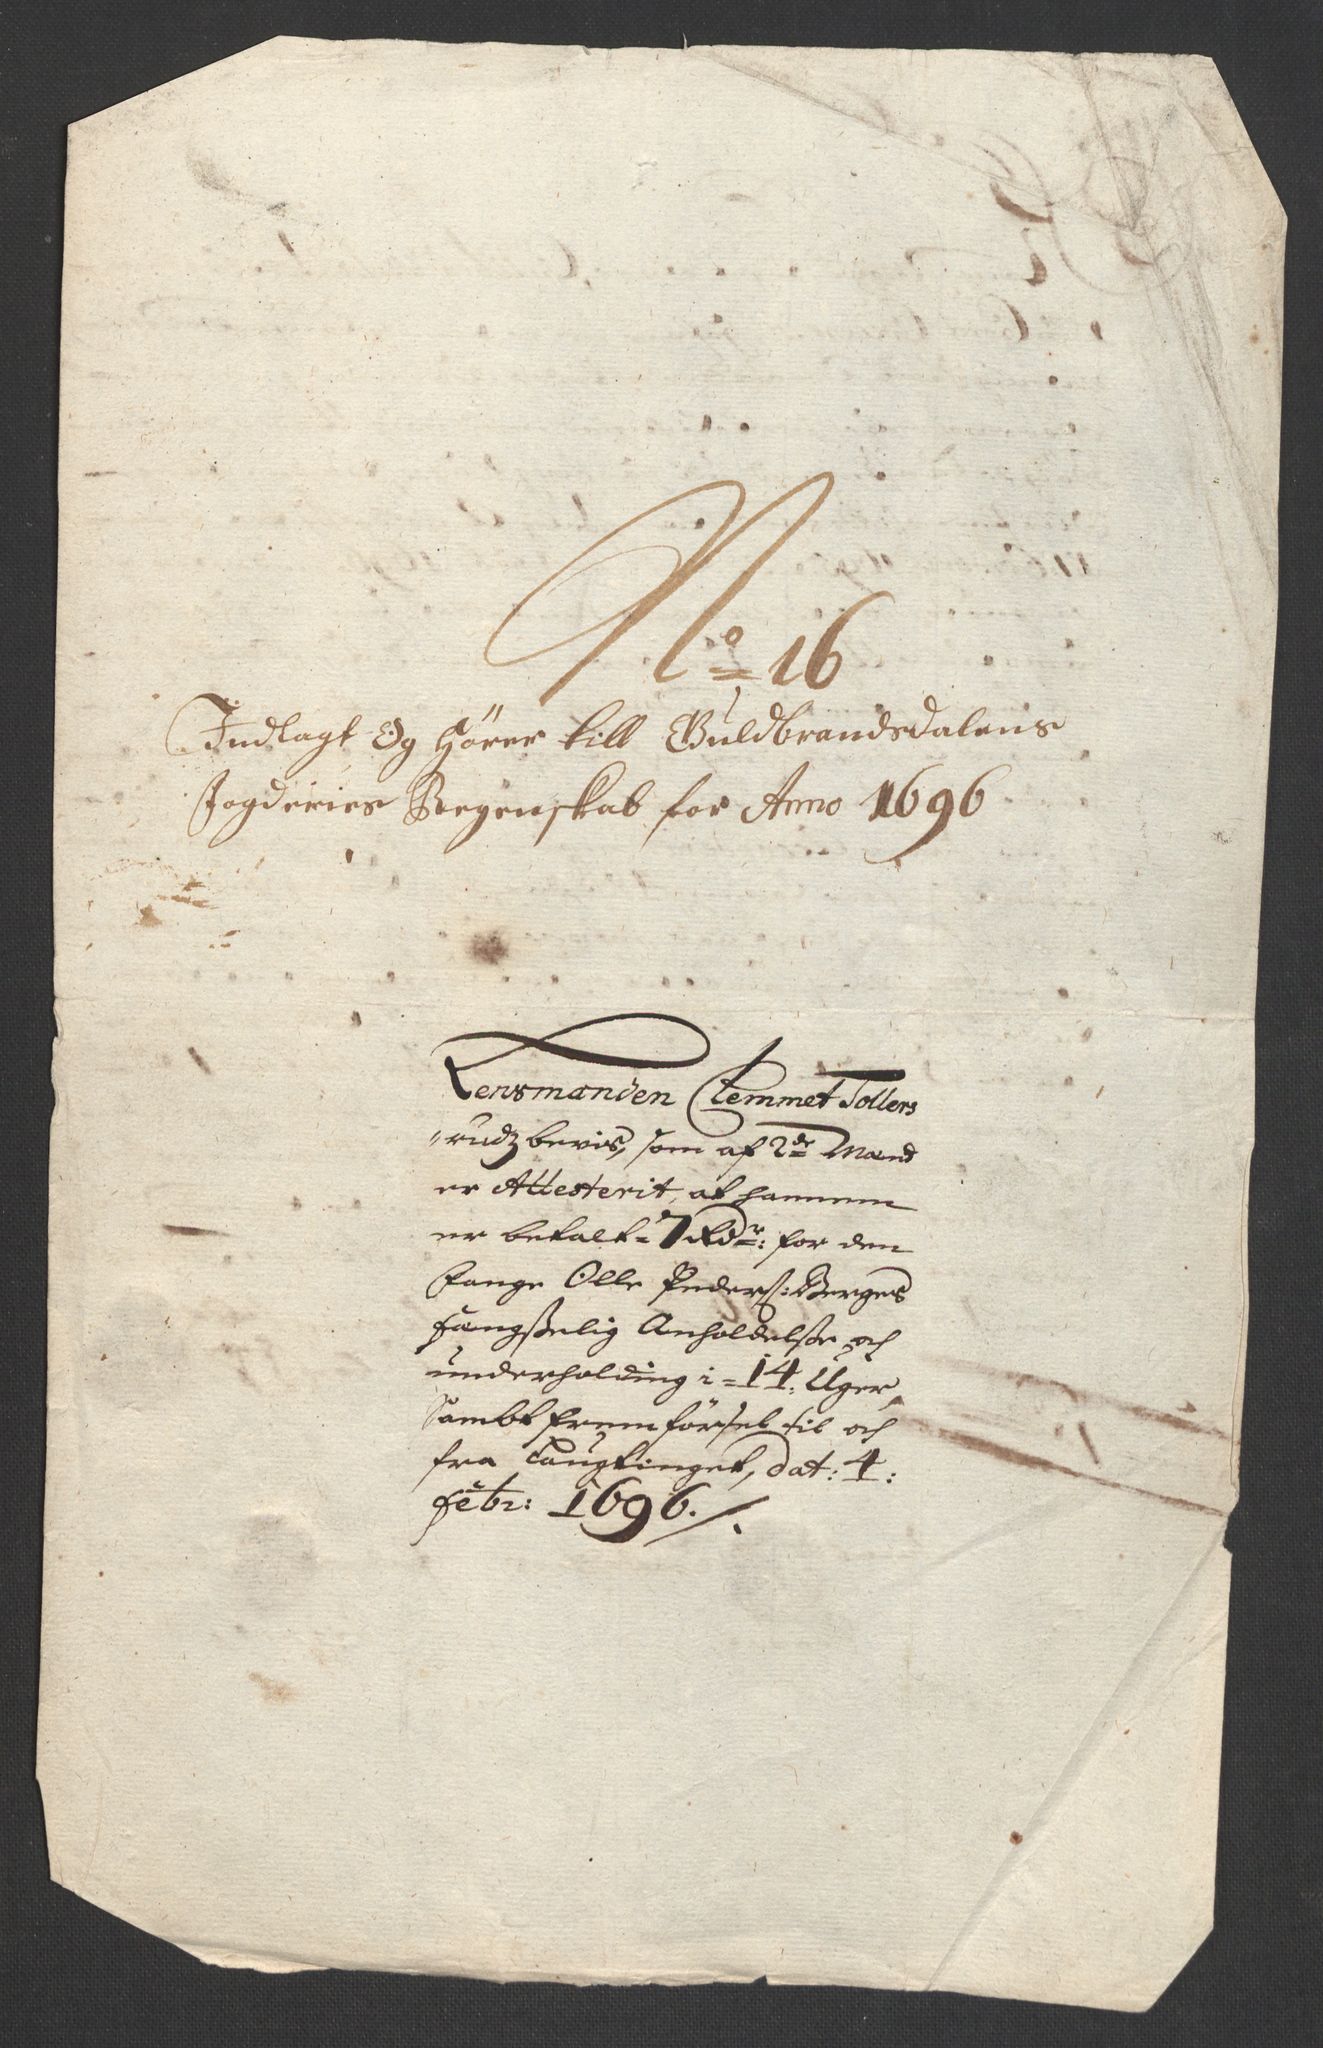 No 16
Indlagt Og Hörer till Guldbrandsdalens
fogderies Regenskab for Anno 1696
Lensmanden Clemmet Tollers
rudz bevis, som af 2de Mænd
er Attesterit, at hannem
er betalt 7 Rdr: for den
fange Olle Peders: Berges
fængßelig Anholdelße och
underholding i 14. Uger,
Sambt fremförsel til och
fra Laugtinget, dat: 4:
febr: 1696.